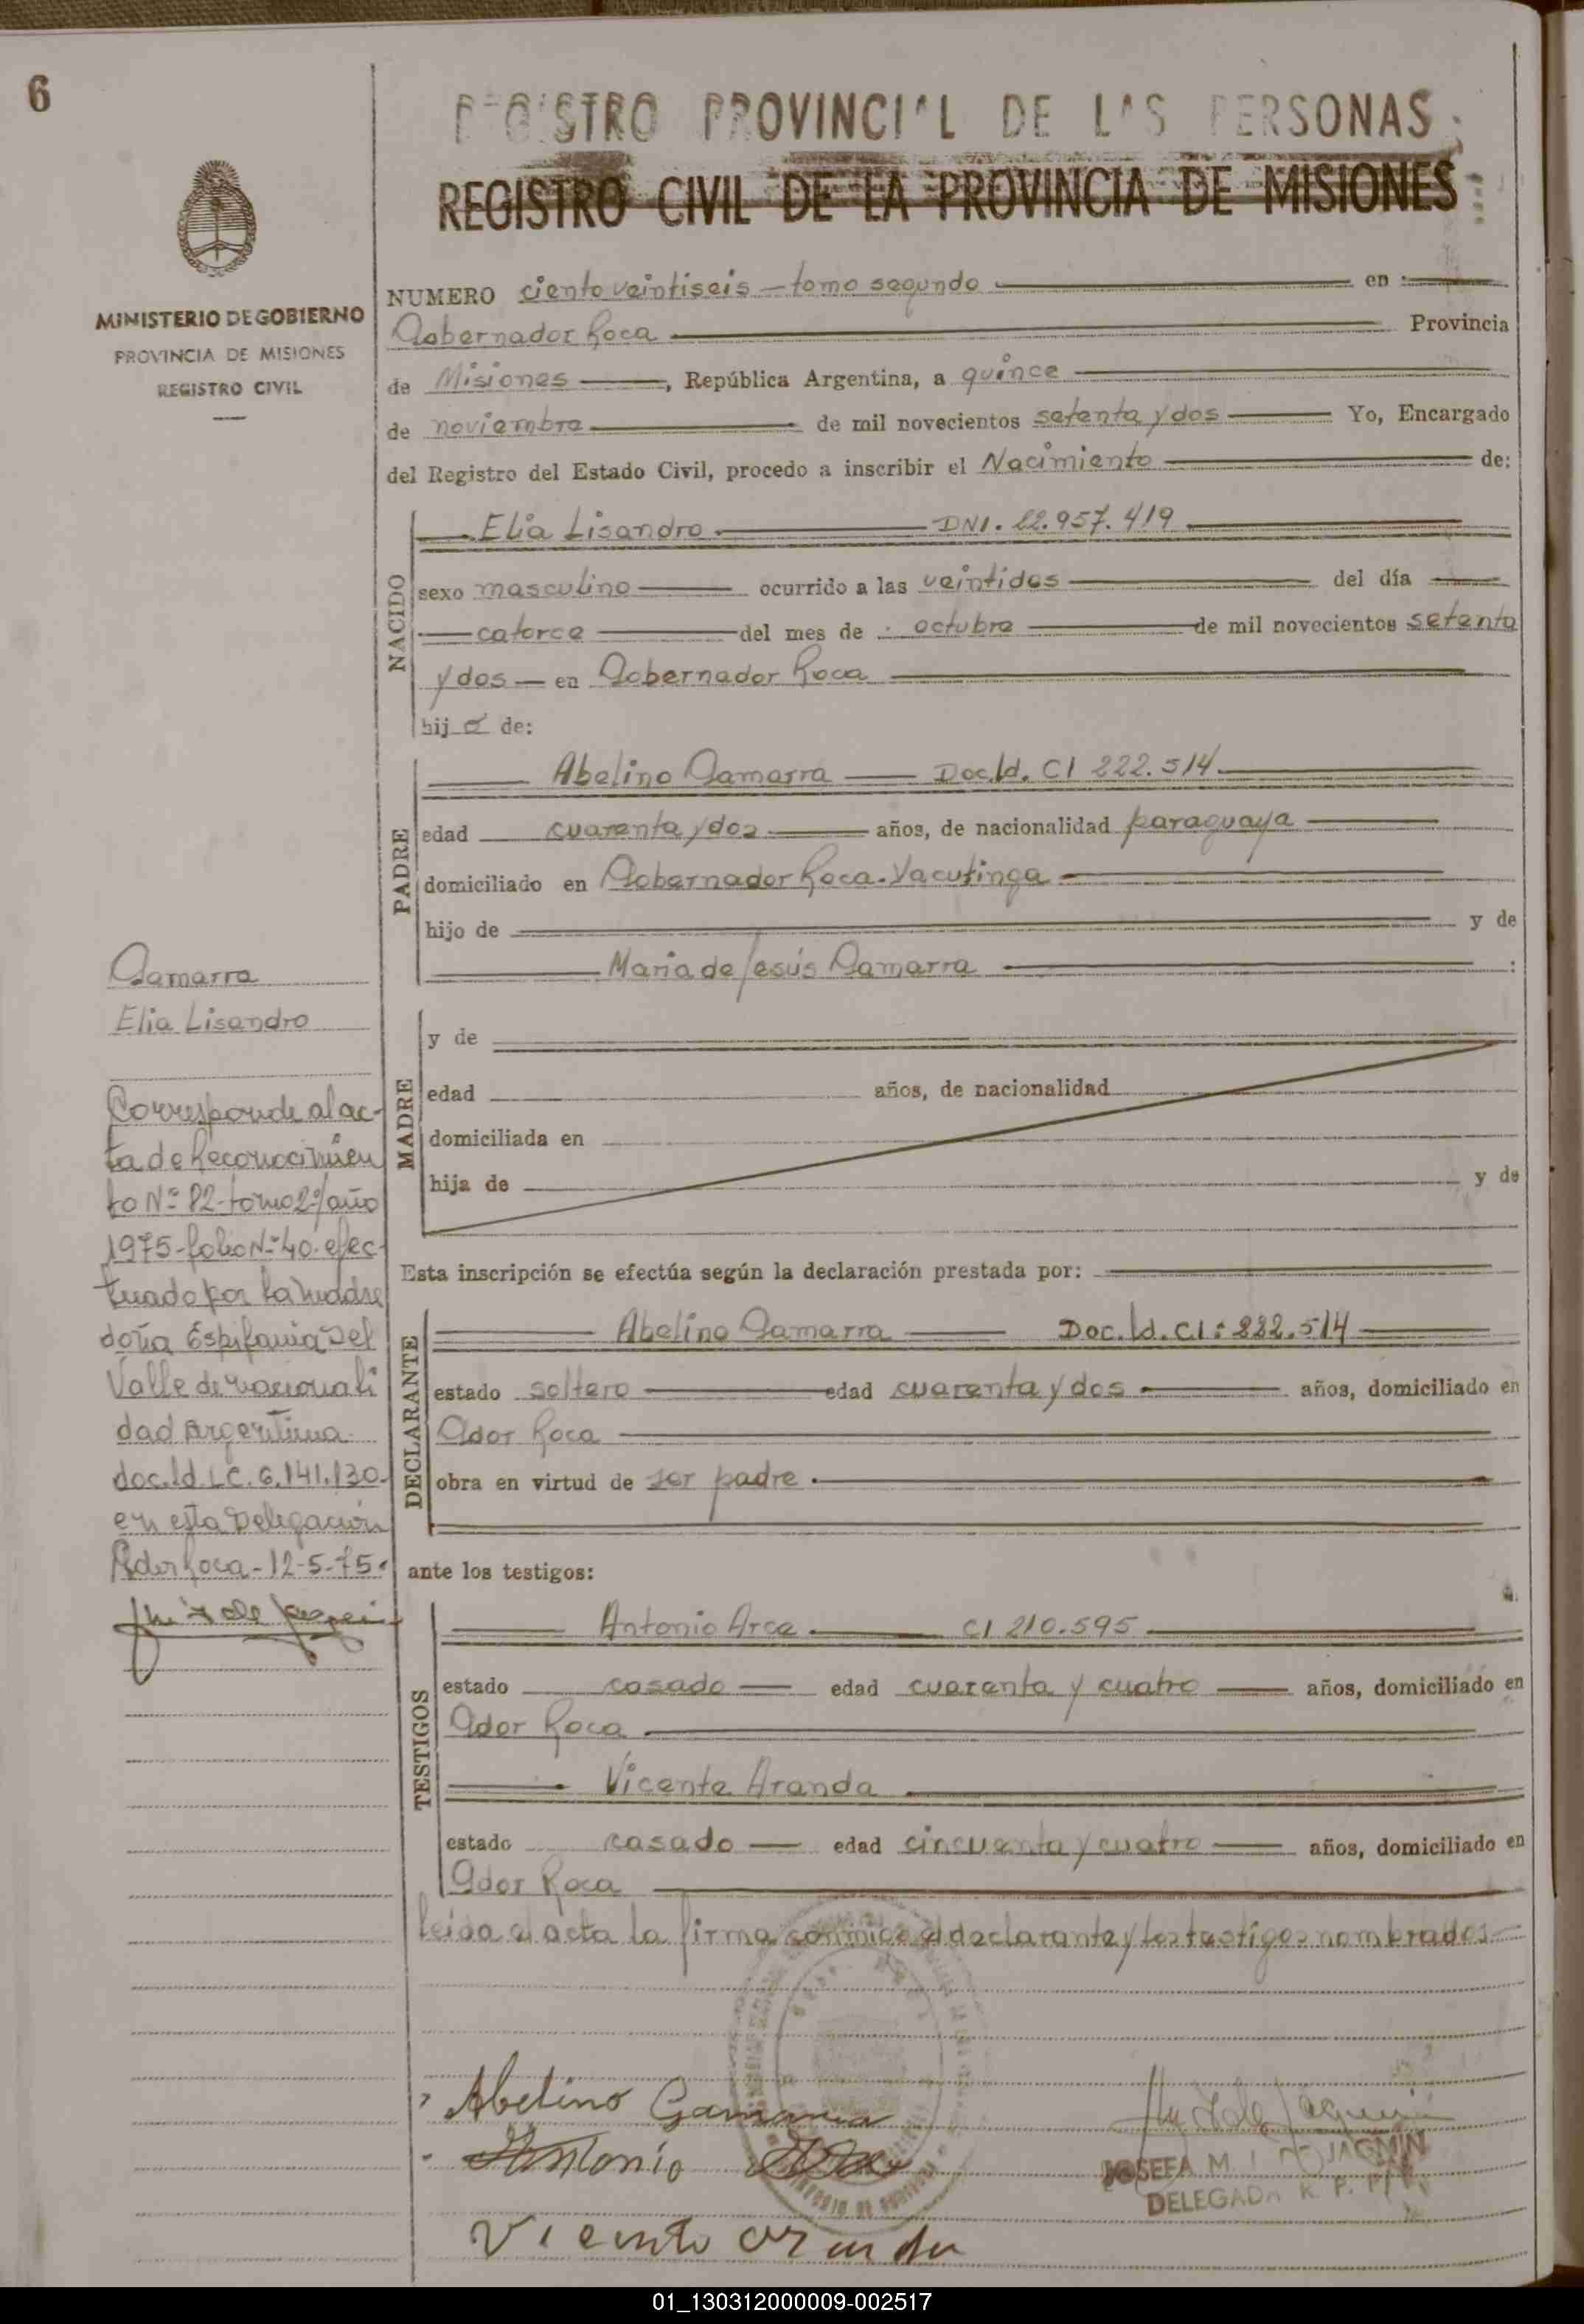 6
REGISTRO PROVINCIAL DE LAS PERSONAS
REGISTRO CIVIL DE LA PROVINCIA DE MISIONES
MINISTERIO DE GOBIERNO
PROVINCIA DE MISIONES
REGISTRO CIVIL
NUMERO ciento veintiseis - tomo segundo en
Gobernador Roca Provincia
de Misiones, República Argentina, a quince
de noviembre de mil novecientos setenta y dos Yo, Encargado
del Registro del Estado Civil, procedo a inscribir el Nacimiento de:
NACIDO
Elia Lisandro DNI. 22.957.419
sexo masculino ocurrido a las veintidos del día
catorce del mes de octubre de mil novecientos setenta
y dos en Gobernador Roca
hijo de:
PADRE
Abelino Gamarra Doc.Id. CI 222.514
edad cuarenta y dos años, de nacionalidad paraguaya
domiciliado en Gobernador Roca. Yacutinga
hijo de y de
Maria de Jesús Gamarra :
MADRE
y de
edad años, de nacionalidad
domiciliada en
hija de y de
Esta inscripción se efectúa según la declaración prestada por:
DECLARANTE
Abelino Gamarra Doc. Id. CI: 222.514
estado soltero edad cuarenta y dos años, domiciliado en
Gdor Roca
obra en virtud de ser padre.
ante los testigos:
TESTIGOS
Antonio Arce CI 210.595
estado casado edad cuarenta y cuatro años, domiciliado en
Gdor Roca
Vicente Aranda
estado casado edad cincuenta y cuatro años, domiciliado en
Gdor Roca
leida el acta la firma conmigo el declarante y los testigos nombrados
Gamarra
Elia Lisandro
Corresponde al ac-
ta de Reconocimien
to Nº 82-tomo 2º/año
1975-folio Nº 40. efec-
tuado por la madre
doña Espifania Del
Valle de nacionali
dad Argentina
doc.Id. LC. 6.141.130
en esta Delegación
Gdor Roca - 12-5-75.
Abelino Gamarra
Antonio Arce
Vicente Aranda
JOSEFA M. JAGMIN
DELEGADA R. P. P.
01_130312000009-002517